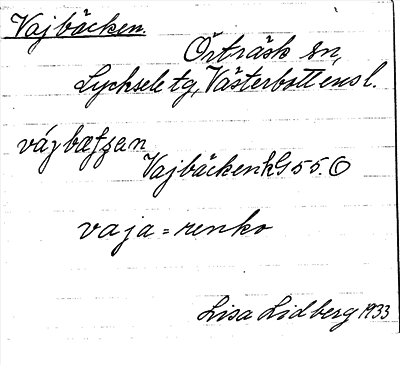 Vajbäcken.
Örträsk sn,
Lycksele tg, Västerbottens l.
Vajbäcken hG 55. O
vaja = renko
Lisa Lidberg 1933